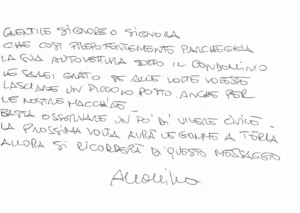 GENTILE SIGNORE O SIGNORA
CHE COSÌ PREPOTENTEMENTE PARCHEGGIA
LA SUA AUTOVETTURA SOTTO IL CONDOMINIO
LE SAREI GRATO SE ALLE VOLTE VOLESSE
LASCIARE UN PICCOLO POSTO ANCHE PER
LE NOSTRE MACCHINE
BASTA OSSERVARE UN PO' DI VIVERE CIVILE
LA PROSSIMA VOLTA AVRÀ LE GOMME A TERRA
ALLORA SI RICORDERÀ DI QUESTO MESSAGGIO